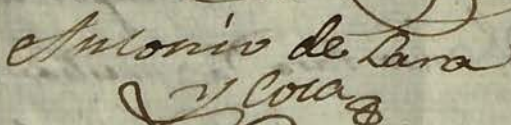 Antonio de Lara
y Cora